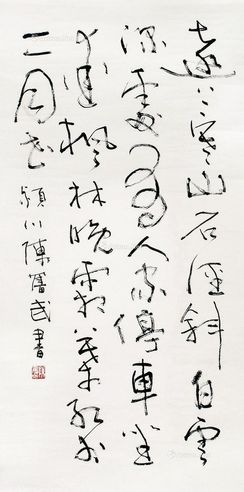 遠上寒山石徑斜白雲
深處有人家停車坐
愛楓林晚霜葉紅於
二月花 潁川陳奮武書